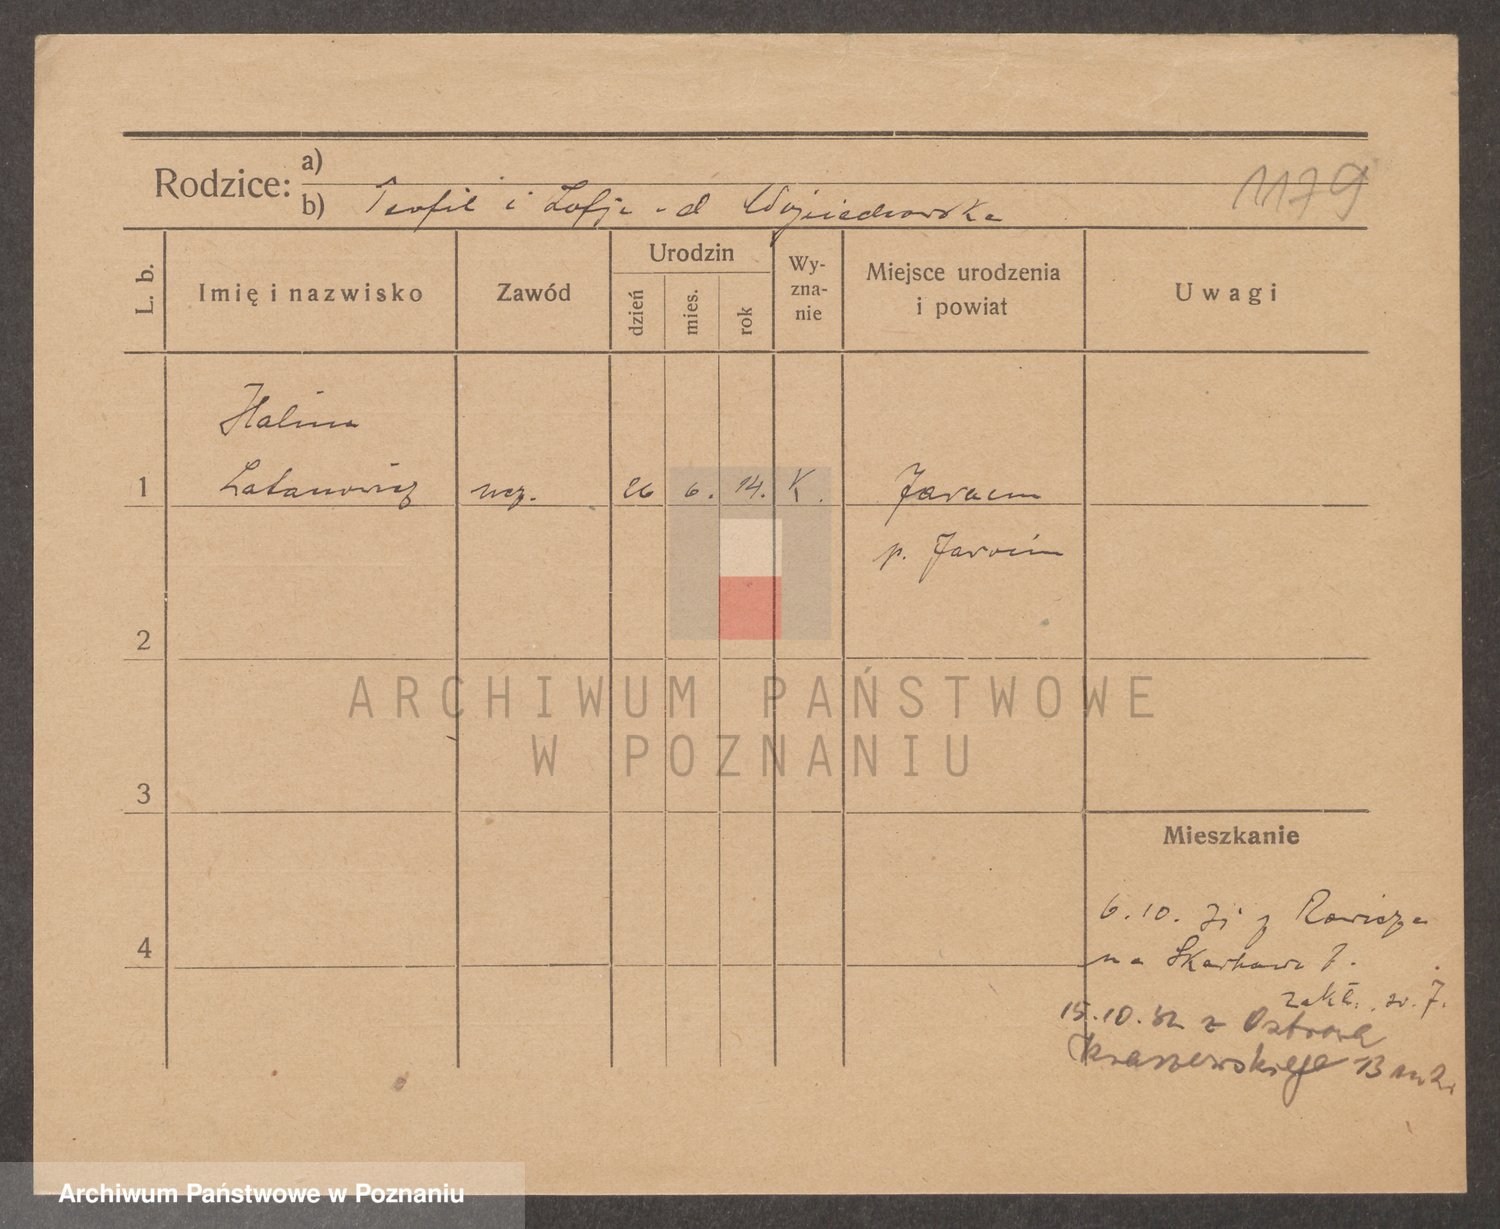 Rodzice: a)
b) Teofil i Zofja - d Wojciechowska
1179
L. b.
Imię i nazwisko
Zawód
Urodzin
dzień
mies.
rok
Wy-
zna-
nie
Miejsce urodzenia
i powiat
Uwagi
Halina
1 Latanowicz ucz. 26 6. 14. K. Jaracz
p. Jarocin
2
ARCHIWUM PAŃSTWOWE
W POZNANIU
3
Mieszkanie
6.10. z Rawicza
4
na Skarbowa 7.
zakł. św. J.
15.10.32 z Ostrowa
Kraszewskiego 13 m 2.
Archiwum Państwowe w Poznaniu